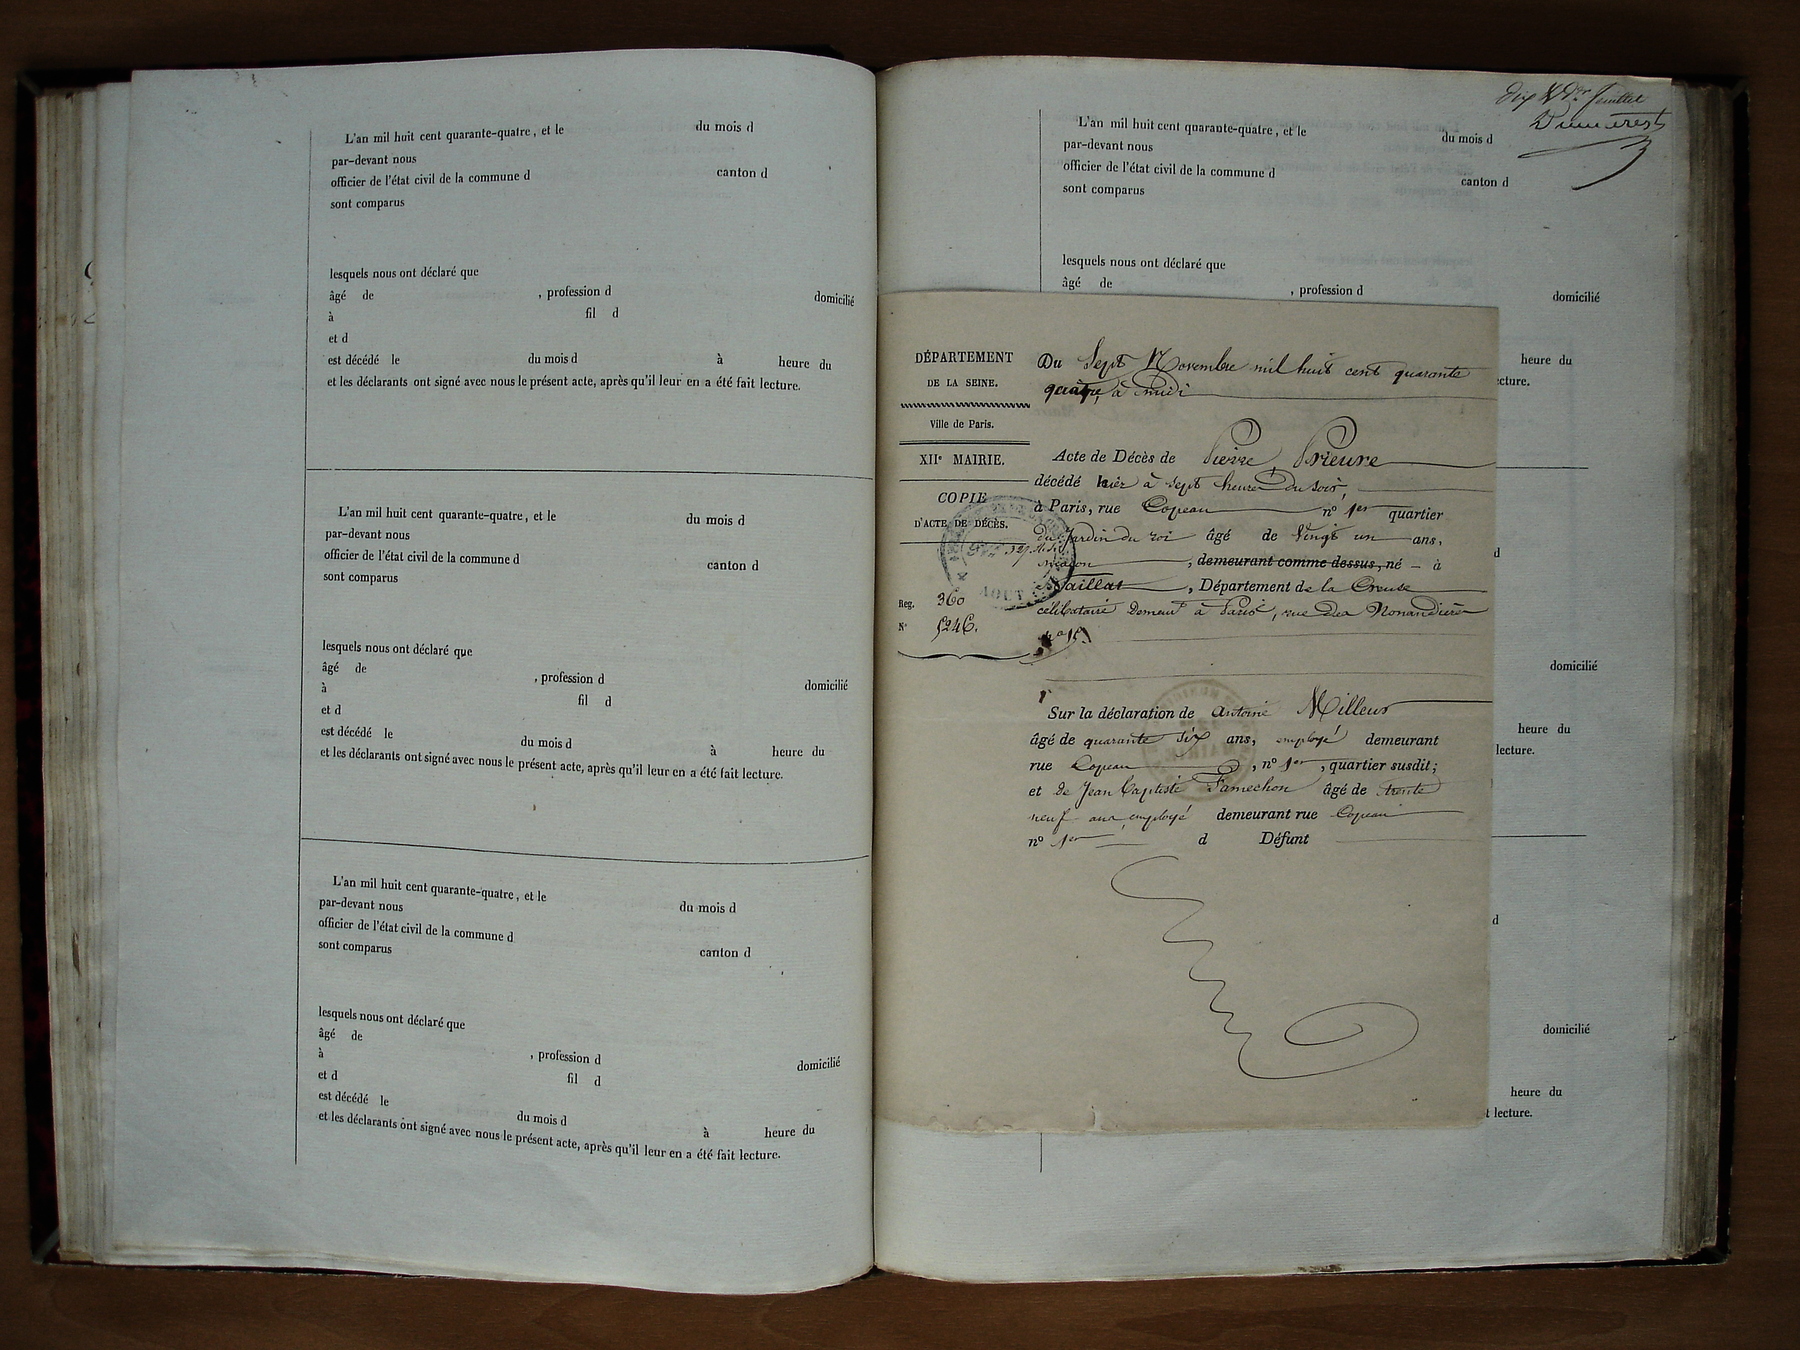 L'an mil huit cent quarante-quatre, et le du mois d
par-devant nous
officier de l'état civil de la commune d canton d
sont comparus
lesquels nous ont déclaré que
âgé de , profession d domicilié
à fil d
et d
est décédé le du mois d à heure du
et les déclarants ont signé avec nous le présent acte, après qu'il leur en a été fait lecture.
L'an mil huit cent quarante-quatre, et le du mois d
par-devant nous
officier de l'état civil de la commune d canton d
sont comparus
lesquels nous ont déclaré que
âgé de , profession d domicilié
à fil d
et d
est décédé le du mois d à heure du
et les déclarants ont signé avec nous le présent acte, après qu'il leur en a été fait lecture.
L'an mil huit cent quarante-quatre, et le du mois d
par-devant nous
officier de l'état civil de la commune d canton d
sont comparus
lesquels nous ont déclaré que
âgé de , profession d domicilié
à fil d
et d
est décédé le du mois d à heure du
et les déclarants ont signé avec nous le présent acte, après qu'il leur en a été fait lecture.
feuillet
L'an mil huit cent quarante-quatre, et le du mois d
par-devant nous
officier de l'état civil de la commune d canton d
sont comparus
lesquels nous ont déclaré que
âgé de , profession d domicilié
heure du
cture.
DÉPARTEMENT
DE LA SEINE.
Ville de Paris.
XIIe MAIRIE.
COPIE
D'ACTE DE DÉCÈS.
AOUT
Reg. 360
N° 5246.
Du Sept Novembre mil huit cent quarante
quatre, à midi
Acte de Décès de Pierre Prieure
décédé hier à sept heures du soir,
à Paris, rue Copeau n° 1er quartier
du Jardin du roi âgé de Vingt un ans,
maçon, demeurant comme dessus, né à
, Département de la Creuse
célibataire Demeurt à Paris, rue des Nonandières
n° 15
Sur la déclaration de Antoine Milleur
âgé de quarante six ans, employé demeurant
rue Copeau, n° 1er, quartier susdit;
et de Jean Baptiste Famechon âgé de trente
neuf ans, employé demeurant rue Copeau
n° 1er d Défunt
d
domicilié
heure du
lecture.
d
domicilié
heure du
t lecture.